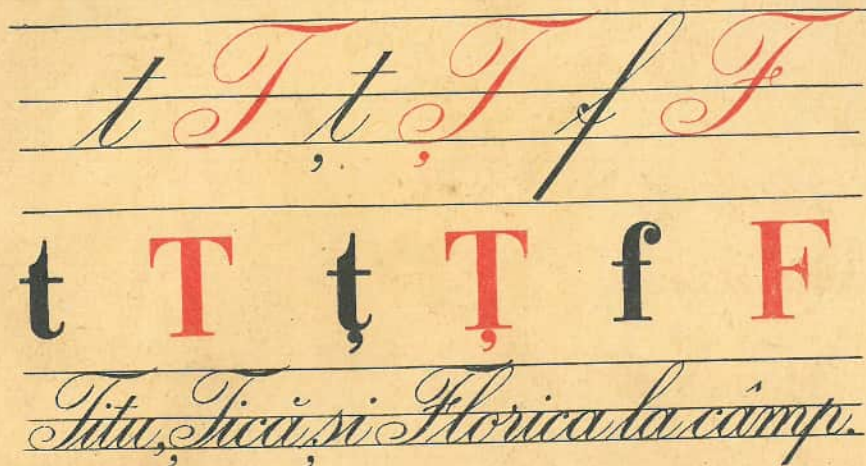 t T ț Ț f F
t T ț Ț f F
Titu, Țică și Florica la câmp.